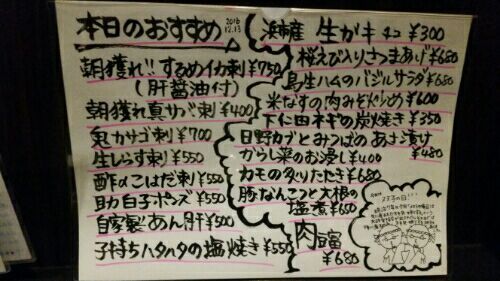 本日のおすすめ
2016
12.13
朝獲れ!! するめイカ刺 ¥750
(肝醤油付)
朝獲れ真サバ刺 ¥400
鬼カサゴ刺 ¥700
生しらす刺 ¥550
酢〆こはだ刺 ¥550
助白子ポンズ ¥550
自家製あん肝 ¥500
子持ちハタハタの塩焼き ¥550
浜市産 生ガキ 1コ ¥300
桜えび入りさつまあげ ¥680
鳥生ハムのバジルサラダ ¥680
米なすの肉みそ炒め ¥600
下仁田ネギの炭焼き ¥350
日野カブとみつばのあさ漬け
¥480
からし菜のお浸し ¥400
カモの炙りたたき ¥680
豚なんこつと大根の
塩煮 ¥650
肉豆腐
¥680